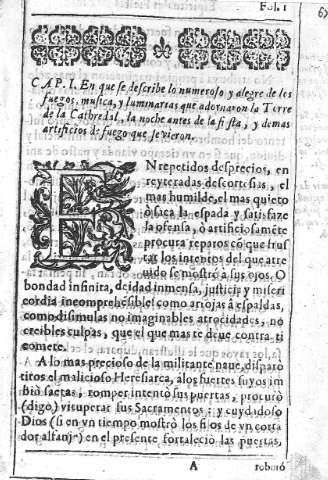 Fol. 1
CAP. I. En que se describe lo numeroso y alegre de los
fuegos, musica, y luminarias que adornaron la Torre
de la Cathredal, la noche antes de la fiesta, y demas
artificios de fuego que se vieron.
EN repetidos desprecios, en
reyteradas descortesias, el
mas humilde, el mas quieto
ò saca la espada y satisfaze
la ofensa, ò artificiosamẽte
procura reparos cõ que frus
tar los intentos del que atre
uido se mostrò a sus ojos. O
bondad infinita, deidad inmensa, justicia y miseri
cordia incomprehẽsible! como arrojas à espaldas,
como disimulas no imaginables atrocidades, no
creibles culpas, que el que mas te deue contra ti
comete.
A lo mas precioso de la militante naue, disparò
tiros el malicioso Heresiarca, a los fuertes suyos im
biò saetas, romper intentò sus puertas, procurò
(digo) vituperar sus Sacramentos; y cuydadoso
Dios (si en vn tiempo mostrò los filos de vn corta
dor alfanje) en el presente fortaleciò las puertas,
A
roborò